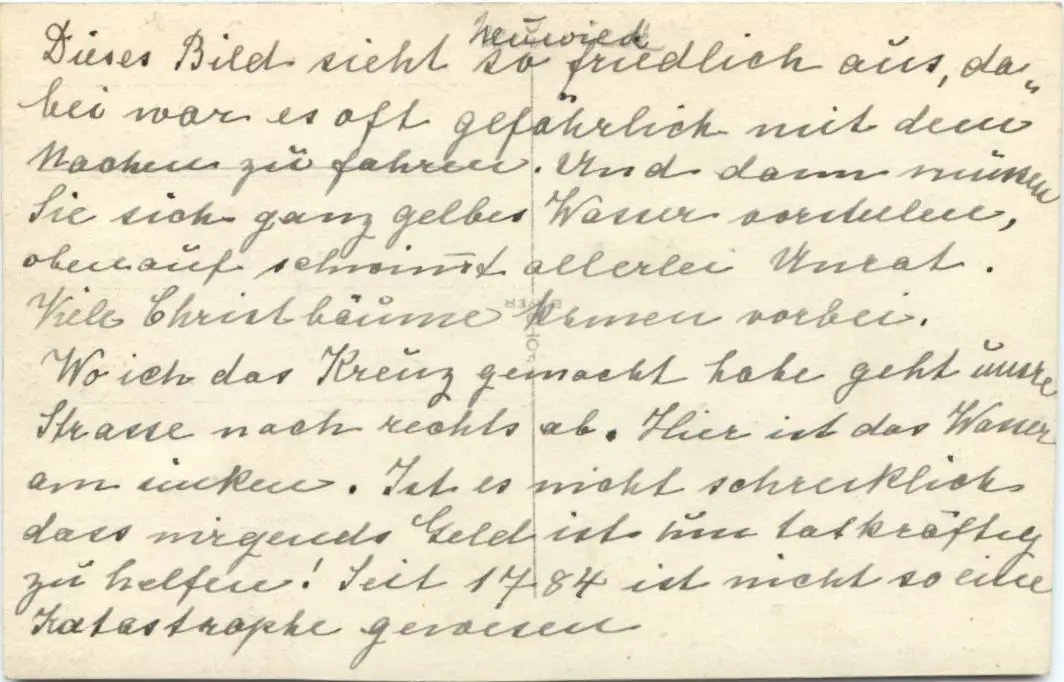 Neuwied
Dieses Bild sieht so friedlich aus, da„
bei war es oft gefährlich mit dem
Nachen zu fahren. Und dann müssen
Sie sich ganz gelbes Wasser vorstellen,
obenauf schwim̅t allerlei Unrat.
Viele Christbäume kamen vorbei.
Wo ich das Kreuz gemacht habe geht unsre
Strasse nach rechts ab. Hier ist das Wasser
am sinken. Ist es nicht schrecklich
dass nirgends Geld ist um tatkräftig
zu helfen! Seit 1784 ist nicht so eine
Katastrophe gewesen